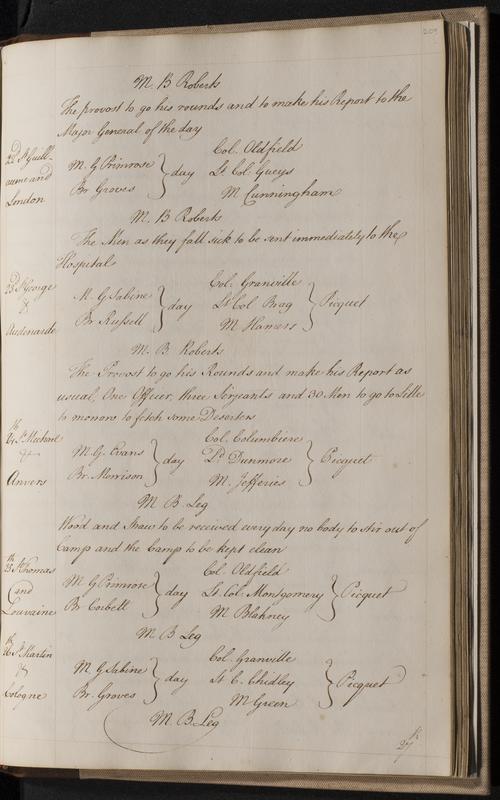 209
M. B Roberts
The provost to go his rounds and to make his Report to the
Major General of the day
22d St Guill-
aume and
London
M. G Primrose
Br Groves
day
Col. Oldfield
Lt Col. Gueys
M Cunningham
M. B Roberts
The Men as they fall sick to be sent immediately to the
Hospitals
23d St George
&
Audenarde
M. G Sabine
Br Russell
day
Col. Granville
Lt Col. Brag
M Hamers
Picquet
M. B. Roberts
The Provost to go his Rounds and make his Report as
usual, One Officer, three Serjeants and 30 Men to go to Lille
to morow to fetch some Deserters
24th St Michael
&
Anvers
M. G. Evans
Br. Morrison
day
Col. Columbiere
Ld Dunmore
M. Jefferies
Picquet
M B Leg
Wood and Straw to be received every day no body to stir out of
Camp and the Camp to be kept clean
25th St Thomas
and
Louvaine
M. G Primrose
Br Corbett
day
Col. Oldfield
Lt. Col. Montgomery
M Blakney
Picquet
M B Leg
26th St Martin
&
Cologne
M. G Sabine
Br. Groves
day
Col. Granville
Lt C. Chidley
M Green
Picquet
M. B. Leg
27th